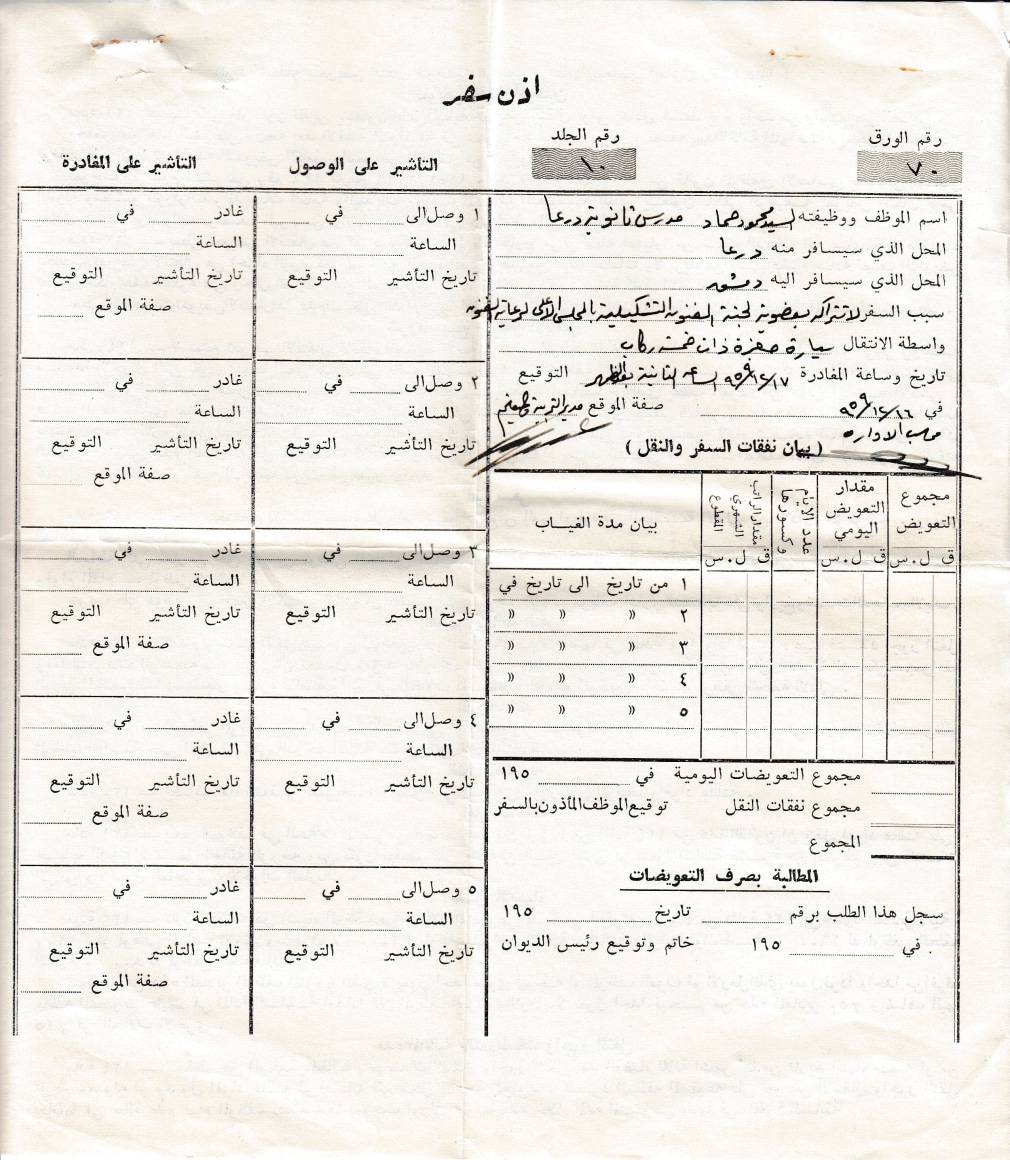 اذن سفر
رقم الورق
٧٠
رقم الجلد
١٠
التأشير على الوصول
التأشير على المغادرة
اسم الموظف ووظيفته السيد محمود حماد مدرس ثانوية درعا
المحل الذي سيسافر منه درعا
المحل الذي سيسافر اليه دمشق
سبب السفر لاشتراكه بعضوية لجنة الفنون التشكيلية بالمجلس الاعلى لرعاية الفنون
واسطة الانتقال سيارة صغيرة ذات خمسة ركاب
تاريخ وساعة المغادرة ٩٥٩/١٢/١٧ الساعة الثانية بعد الظهر التوقيع
في ٩٥٩/١٢/١٦ صفة الموقع مدير التربية والتعليم
محاسب الادارة
( بيان نفقات السفر والنقل )
مجموع التعويض
مقدار التعويض اليومي
عدد الايام وكسورها
مقدار الراتب الشهري المقطوع
بيان مدة الغياب
ق ل.س
ق ل.س
ق ل.س
١ من تاريخ الى تاريخ في
٢ » » »
٣ » » »
٤ » » »
٥ » » »
مجموع التعويضات اليومية في ١٩٥
مجموع نفقات النقل توقيع الموظف المأذون بالسفر
المجموع
المطالبة بصرف التعويضات
سجل هذا الطلب برقم تاريخ ١٩٥
في ١٩٥ خاتم وتوقيع رئيس الديوان
١ وصل الى في
الساعة
تاريخ التأشير التوقيع
غادر في
الساعة
تاريخ التأشير التوقيع
صفة الموقع
٢ وصل الى في
الساعة
تاريخ التأشير التوقيع
غادر في
الساعة
تاريخ التأشير التوقيع
صفة الموقع
٣ وصل الى في
الساعة
تاريخ التأشير التوقيع
غادر في
الساعة
تاريخ التأشير التوقيع
صفة الموقع
٤ وصل الى في
الساعة
تاريخ التأشير التوقيع
غادر في
الساعة
تاريخ التأشير التوقيع
صفة الموقع
٥ وصل الى في
الساعة
تاريخ التأشير التوقيع
غادر في
الساعة
تاريخ التأشير التوقيع
صفة الموقع